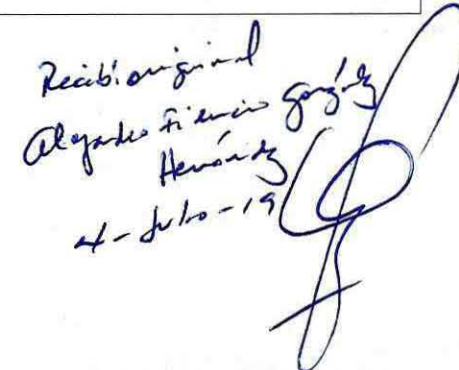 Recibí original
Alejandro Fidencio González
Hernández
4-Julio-19